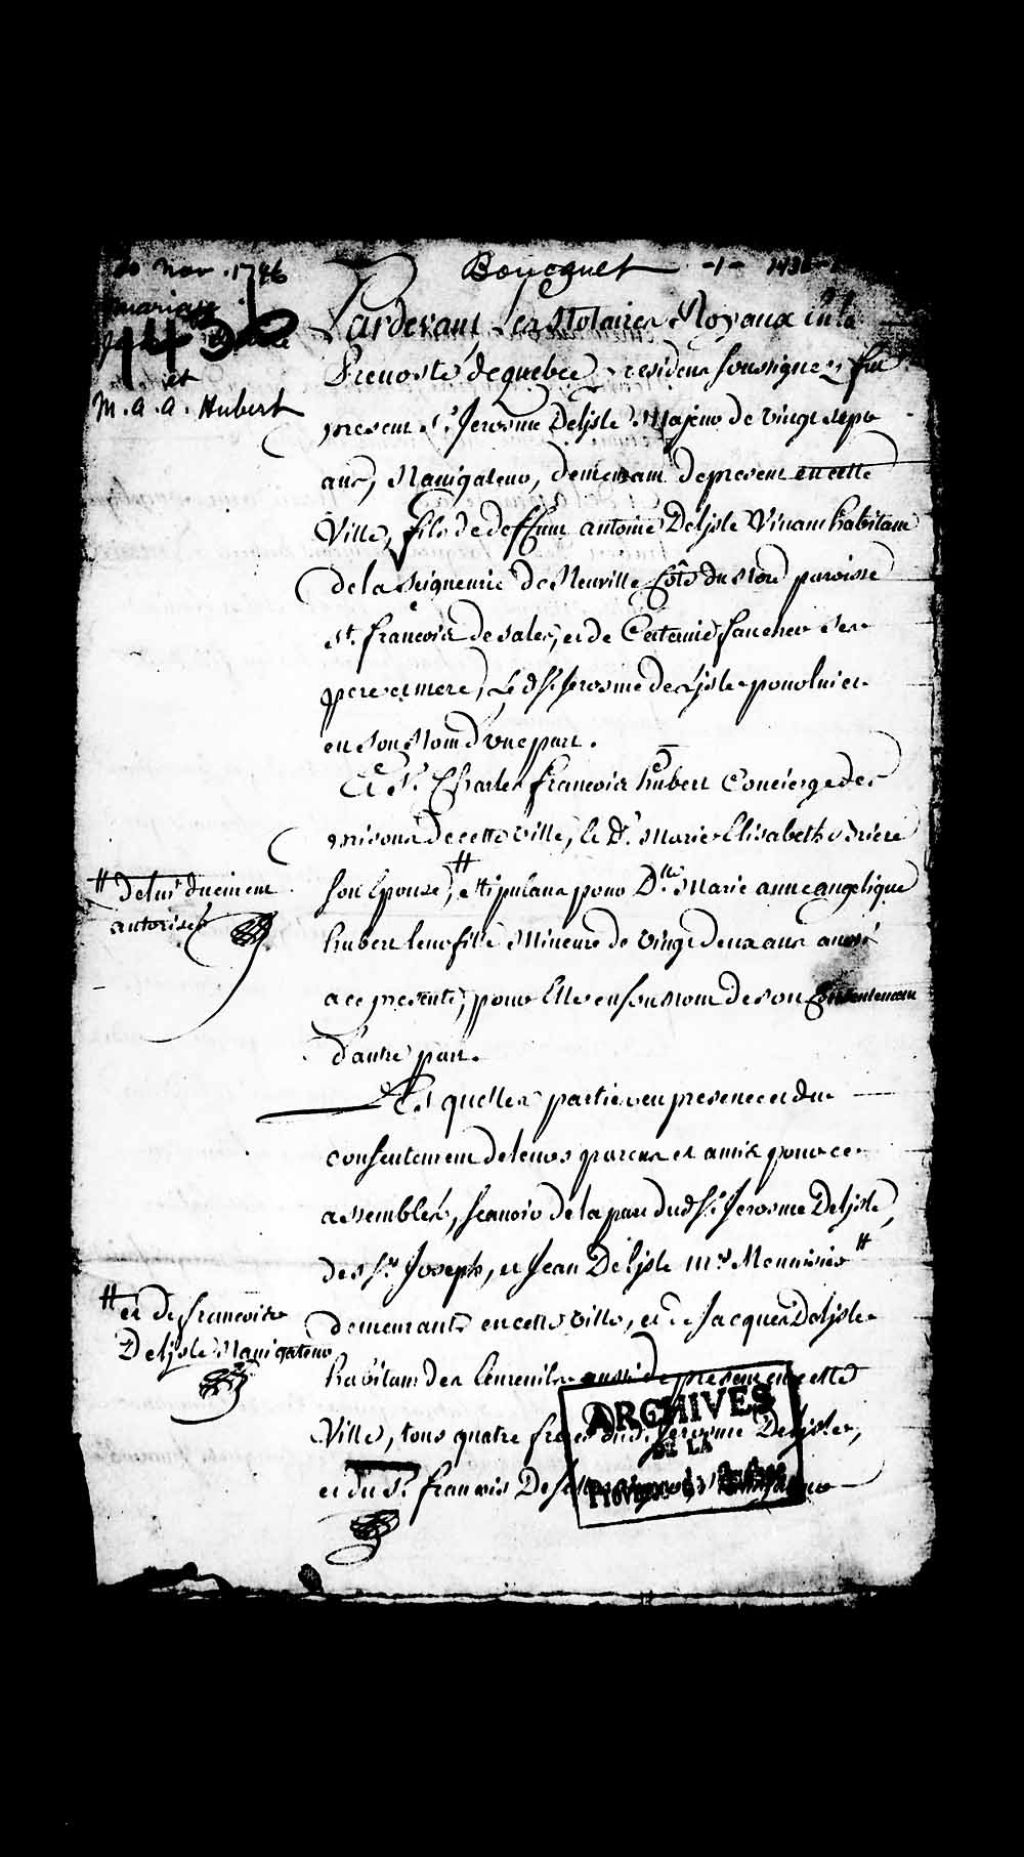 nov. 1746
mariage
1432
et
M. a. a. Hubert
Boucquet -1-
Pardevant Les Notaires Royaux en la
Prevosté de quebec, residens soussignez, fut
present Sr. Jerosme Delisle Majeur de vingt sept
ans, Navigateur, demeurant de present en cette
Ville, fils de deffunt antoine Delisle vivant habitant
de la Seigneurie de Neuville Coté du Nord paroisse
St. francois de Sales, et de Caterine faucher ses
pere et mere, Le d. Sr. Jerosme de Lisle pour lui et
en son Nom d'une part.
Et Sr. Charles francois hubert Concierge des
prisons de cette ville, & De. Marie Elisabeth
son Epouse, # stipulans pour Dlle. Marie anne angelique
# de lui duement
autorisée
hubert leur fille Mineure de vingt deux ans aussi
a ce presente, pour Elle en son nom de son Consentement
d'autre part.
Lesquelles parties en presence et du
consentement de leurs parens et amis pour ce
assemblés, scavoir de la part dud. Sr. Jerosme Delisle,
des Srs. Joseph, et Jean Delisle mes. Menuisiers #
# et de francois
Delisle Navigateur
demeurants en cette ville, et de Jacques Delisle
habitant des Ecureuils aussi de present en cette
Ville, tous quatre freres dud. Sr. Jerosme Delisle,
et du Sr. francois
ARCHIVES
DE LA